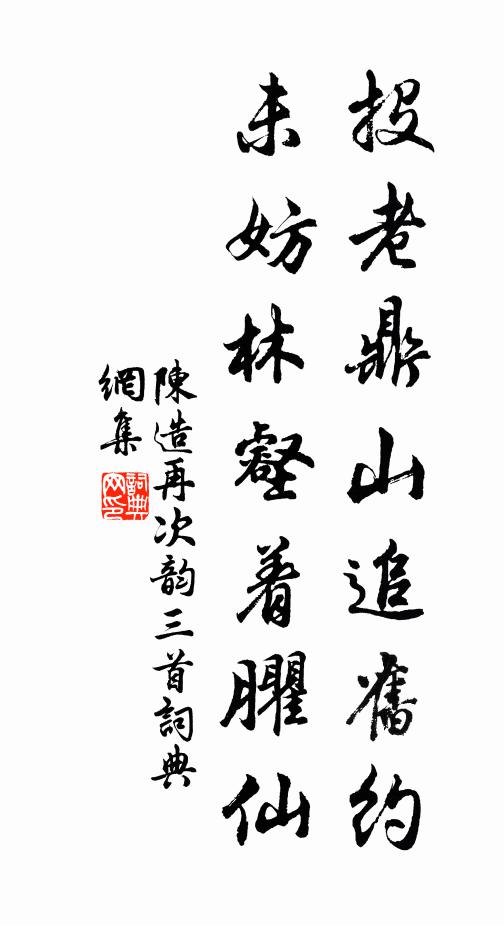 投老鼎山追舊約
未妨林壑着臞仙
陳造再次韵三首詞典
網集
詞典網印